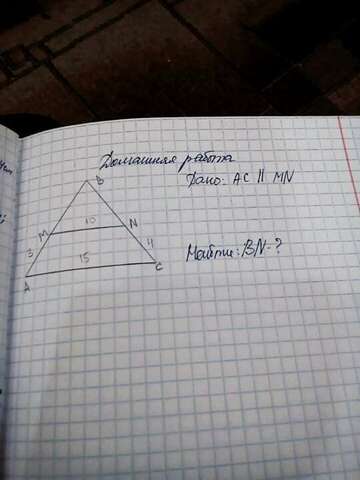 Домашняя работа
Дано: AC || MN
B
10
M
N
3
4
15
A
C
Найти: BN-?